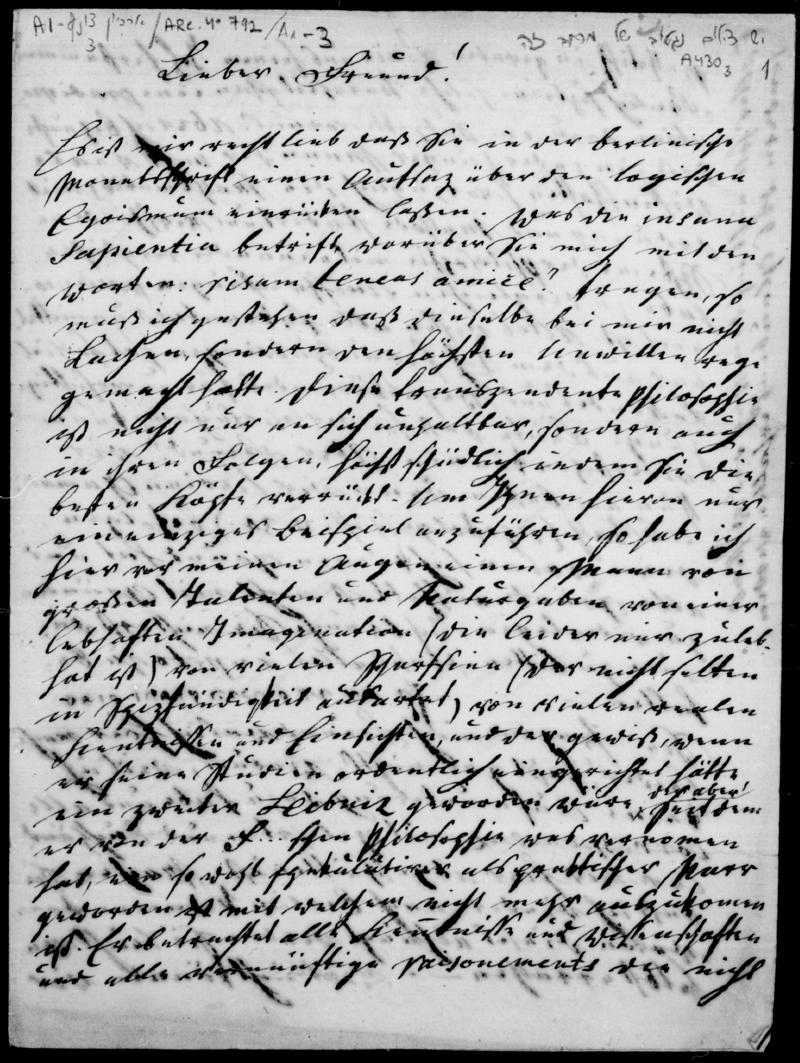 A1-3 ארכיון צונץ / ARC. 4° 792 / A1-3
יש צילום נגטיב של מכתב זה
A430 3
1
Lieber Freund!
Es ist mir recht lieb daß Sie in der berlinische
Monatsschrift einen Aufsaz über den logischen
Egoismum einrüken laßen. Was die insana
Sapientia betrift, worüber Sie mich mit den
worten: risum teneas amice? fragen, so
muß ich gestehen daß dieselbe bei mir nicht
Lachen, sondern den höchsten Unwillen rege
gemacht hatte. Diese transzendente Philosophie
ist nicht nur an sich unhaltbar, sondern auch
in ihren Folgen, höchst schädlich indem Sie die
besten Köpfe verrückt. Um Ihnen hievon nur
ein einziges Beispiel anzuführen, so habe ich
hier vor meinen Augen einen Mann von
großen Talenten und Naturgaben von einer
lebhaften Imagination (die leider nur zu leb-
haft ist) von vielen Scharfsinn (der nicht selten
in Spizfündigkeit ausartet) von vielen realen
Kentnissen und Einsichten, und der gewiß, wenn
er seine Studien ordentlich eingerichtet hätte
ein zweiter Leibniz geworden wäre, der aber, seitdem
er von der F... schen Philosophie was vernomen
hat, ein so wohl spekulativer als praktischer Narr
geworden ist mit welchem nicht mehr auszukomen
ist. Er betrachtet alle Kentnisse und Wissenschaften
und alle vernünftige Raisonements die nicht